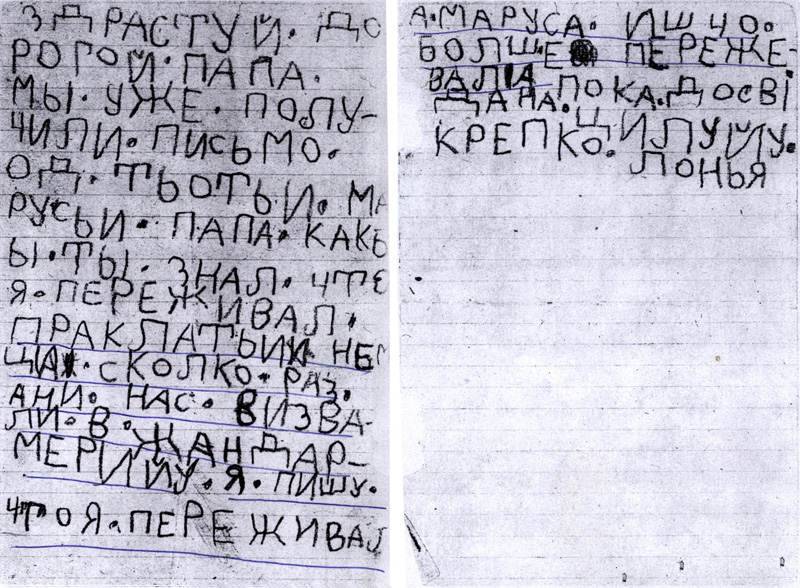 ЗДРАСТУЙ. ДО
РОГОЙ. ПАПА.
МЫ. УЖЕ. ПОЛУ-
ЧИЛИ. ПИСЬМО.
ОД. ТЬОТЬИ. МА
РУСЬИ. ПАПА. КАКБ
Ы. ТЫ. ЗНАЛ. ЧТО
Я. ПЕРЕЖИВАЛ.
ПРАКЛАТЫИ НЕМ
ЦА. СКОЛКО. РАЗ.
АНИ. НАС. ВИЗВА-
ЛИ. В. ЖАНДАР-
МЕРИЙУ. Я. ПИШУ.
ЧТО Я. ПЕРЕЖИВАЛ
А. МАРУСА. ИШЧО.
БОЛШЕ ПЕРЕЖЕ-
ВАЛА ПОКА. ДОСВІ
ДАНА.
КРЕПКО. ЦИЛУЙУ.
ЛОНЬЯ